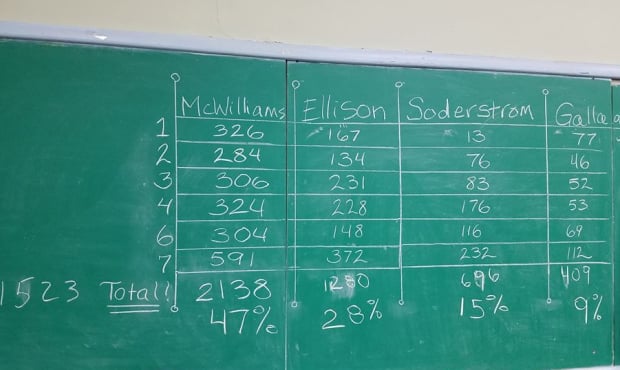 McWilliams Ellison Soderstrom
1 326 167 13 77
2 284 134 76 46
3 306 231 83 52
4 324 228 176 53
6 304 148 116 69
7 591 372 232 112
1523 Total! 2138 1280 696 409
47% 28% 15% 9%